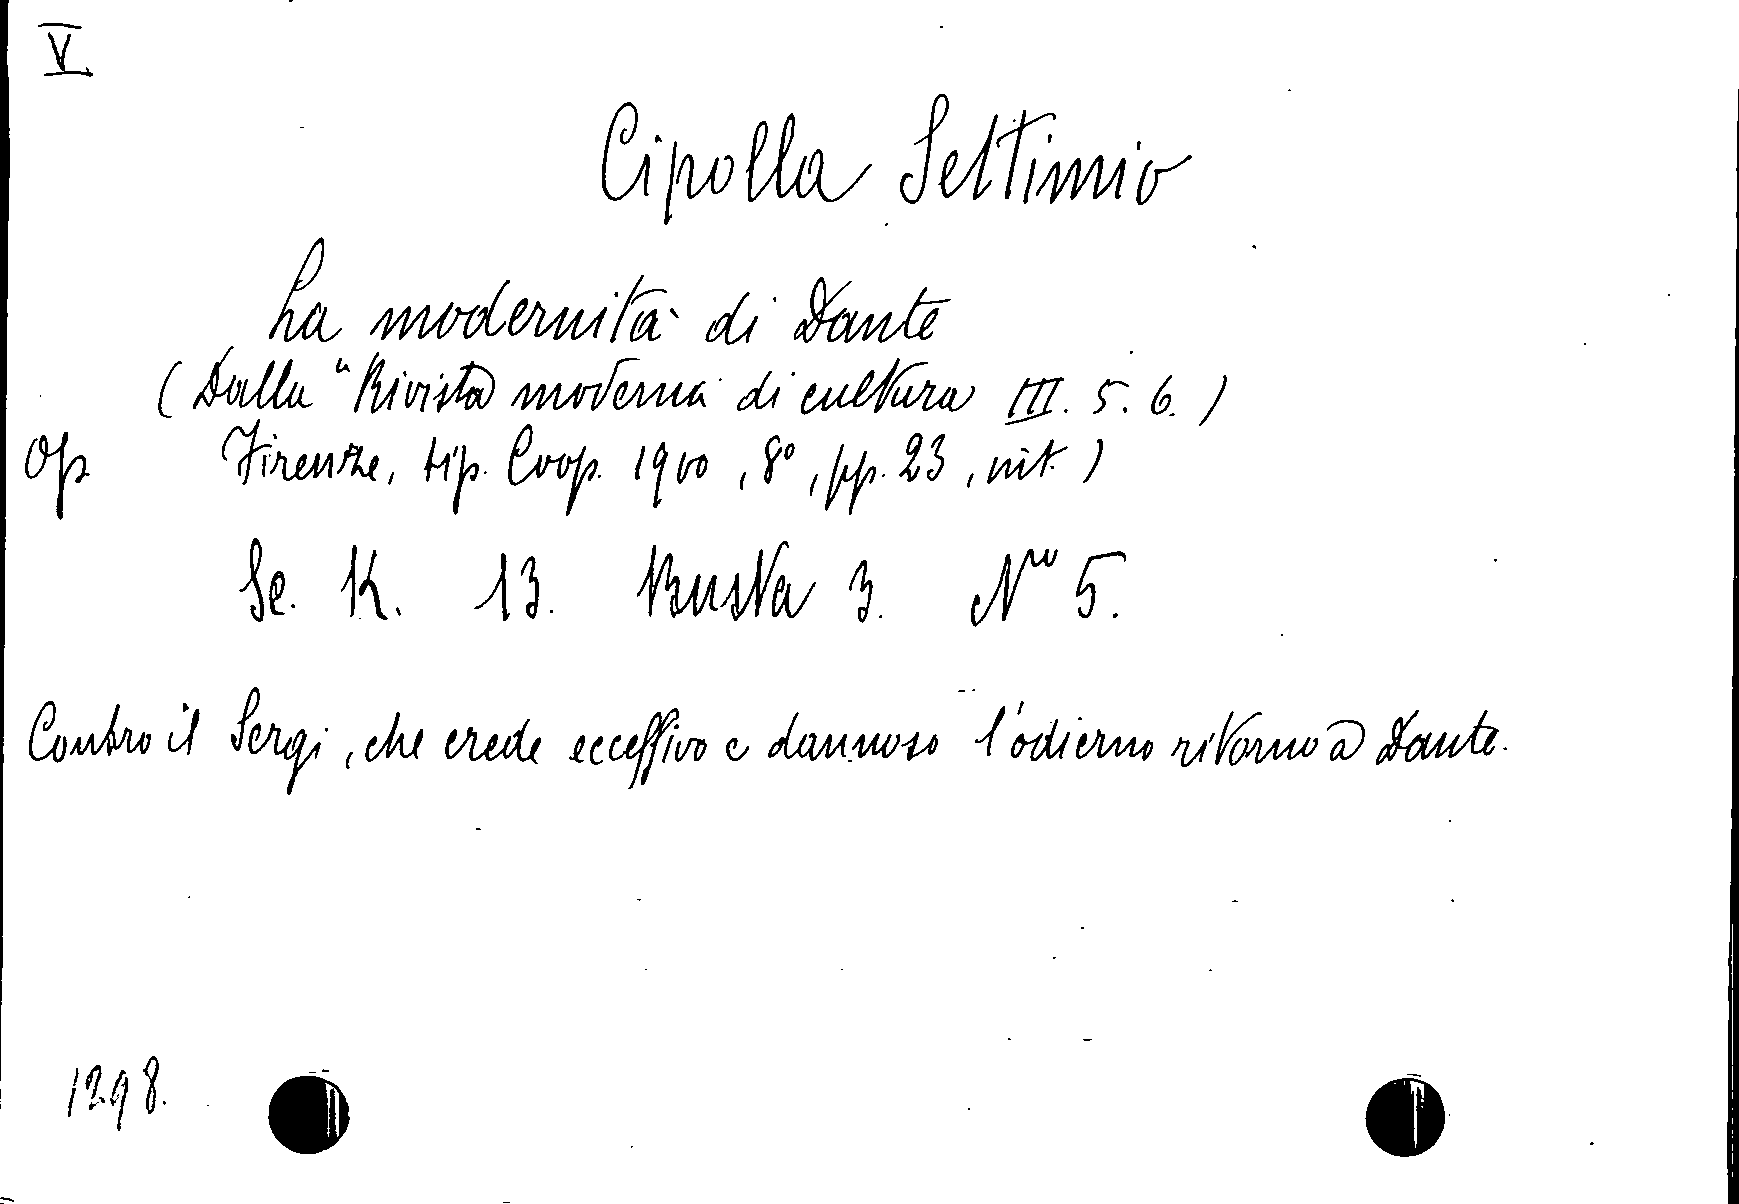 V
Cipolla Settimio
La modernità di Dante
(Dalla "Rivista moderna di cultura III. 5. 6.)
Op Firenze, tip. Coop. 1900, 8°, pp. 23, int.)
Sc. K. 13. Busta 3. Nro 5.
Contro il Sergi, che crede eccessivo e dannoso l'odierno ritorno a Dante.
1298.